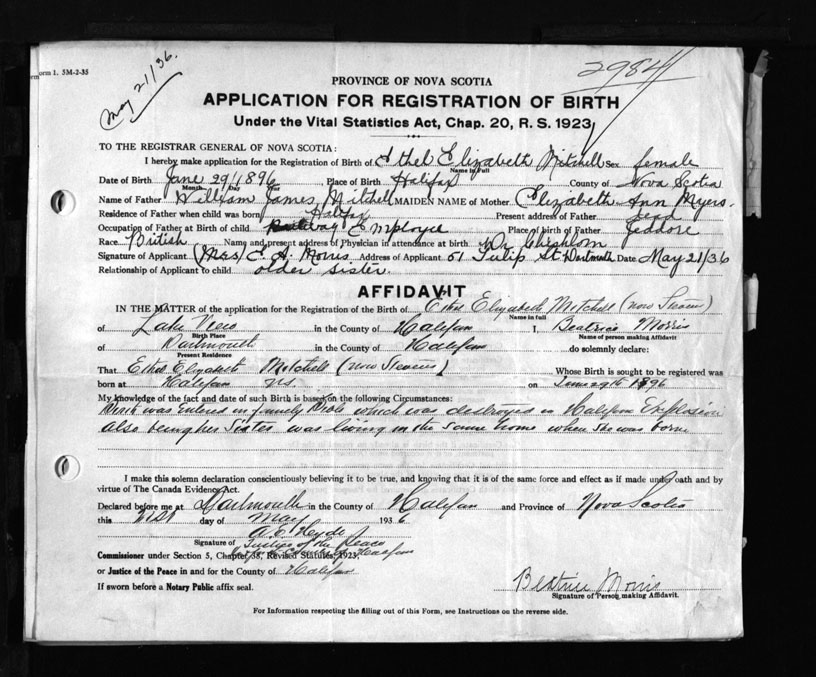 orm 1. 5M-2-35
May 21/36.
2984
PROVINCE OF NOVA SCOTIA
APPLICATION FOR REGISTRATION OF BIRTH
Under the Vital Statistics Act, Chap. 20, R. S. 1923
TO THE REGISTRAR GENERAL OF NOVA SCOTIA:
I hereby make application for the Registration of Birth of Ethel Elizabeth Mitchell Sex female
Name in Full
Date of Birth June 29/1896 Place of Birth Halifax County of Nova Scotia
Month Day
Name of Father William James Mitchell MAIDEN NAME of Mother Elizabeth Ann Myers.
Residence of Father when child was born Halifax Present address of Father dead
Occupation of Father at Birth of child Railway Employee Place of birth of Father Jeddore
Race British Name and present address of Physician in attendance at birth Dr Chisholm
Signature of Applicant (Mrs) E. A. Morris Address of Applicant 51 Tulip St. Dartmouth Date May 21/36
Relationship of Applicant to child older sister.
AFFIDAVIT
IN THE MATTER of the application for the Registration of the Birth of Ethel Elizabeth Mitchell (now Stevens)
Name in full
of Lake View in the County of Halifax I, Beatrice Morris
Birth Place Name of person making Affidavit
of Dartmouth in the County of Halifax do solemnly declare:
Present Residence
That Ethel Elizabeth Mitchell (now Stevens) Whose Birth is sought to be registered was
born at Halifax NS. on June 29th 1896
My knowledge of the fact and date of such Birth is based on the following Circumstances:
Birth was entered in family Bible which was destroyed in Halifax Explosion
also being her Sister was living in the same home when she was born
I make this solemn declaration conscientiously believing it to be true, and knowing that it is of the same force and effect as if made under oath and by
virtue of The Canada Evidence Act.
Declared before me at Dartmouth in the County of Halifax and Province of Nova Scotia
this 21st day of May 1936
Signature of Justice of the Peace
Commissioner under Section 5, Chapter 38, Revised Statutes, 1923,
or Justice of the Peace in and for the County of Halifax
If sworn before a Notary Public affix seal.
Beatrice Morris
Signature of Person making Affidavit.
For Information respecting the filling out of this Form, see Instructions on the reverse side.